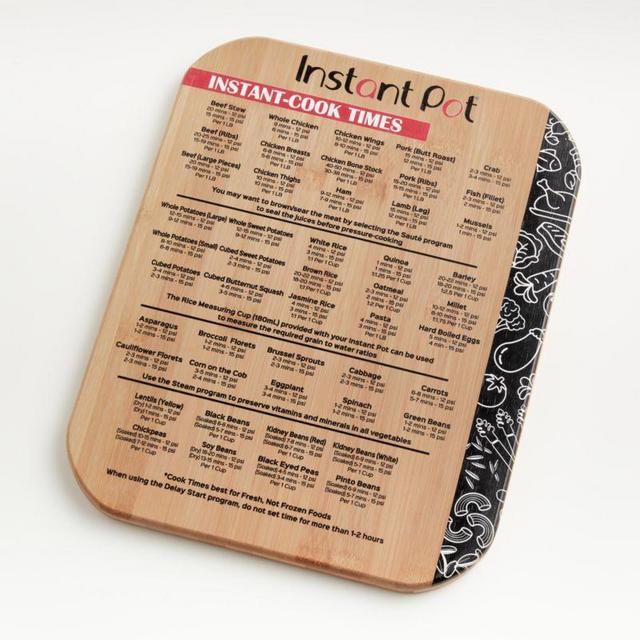 Instant Pot
INSTANT-COOK TIMES
Beef Stew
20 mins - 12 psi
15 mins - 15 psi
Per 1 LB
Whole Chicken
8 mins - 12 psi
6 mins - 15 psi
Per 1 LB
Chicken Wings
10-12 mins - 12 psi
8-10 mins - 15 psi
Per 1 LB
Pork (Butt Roast)
15 mins - 12 psi
12 mins - 15 psi
Per 1 LB
Crab
2-3 mins - 12 psi
3-4 mins - 15 psi
Beef (Ribs)
20-25 mins - 12 psi
15-19 mins - 15 psi
Per 1 LB
Chicken Breasts
6-8 mins - 12 psi
5-8 mins - 15 psi
Per 1 LB
Chicken Bone Stock
40-50 mins - 12 psi
30-38 mins - 15 psi
Per 1 LB
Pork (Ribs)
15-20 mins - 12 psi
11-15 mins - 15 psi
Per 1 LB
Fish (Fillet)
2-3 mins - 12 psi
2 mins - 15 psi
Beef (Large Pieces)
20 mins - 12 psi
15-19 mins - 15 psi
Per 1 LB
Chicken Thighs
10 mins - 12 psi
10 mins - 15 psi
Per 1 LB
Ham
9-12 mins - 12 psi
7-9 mins - 15 psi
Per 1 LB
Lamb (Leg)
15 mins - 12 psi
12 mins - 15 psi
Per 1 LB
Mussels
1-2 mins - 12 psi
1 min - 15 psi
You may want to brown/sear the meat by selecting the Sauté program
to seal the juices before pressure-cooking
Whole Potatoes (Large)
12-15 mins - 12 psi
9-12 mins - 15 psi
Whole Sweet Potatoes
12-15 mins - 12 psi
9-12 mins - 15 psi
White Rice
4 mins - 12 psi
3 mins - 15 psi
1:1 Per 1 Cup
Quinoa
1 mins - 12 psi
1 mins - 15 psi
Barley
20-22 mins - 12 psi
Whole Potatoes (Small)
8-10 mins - 12 psi
6-8 mins - 15 psi
Cubed Sweet Potatoes
2-4 mins - 12 psi
2-3 mins - 15 psi
Brown Rice
20-22 mins - 12 psi
18-20 mins - 15 psi
1:1 Per 1 Cup
Oatmeal
2-3 mins - 12 psi
2 mins - 15 psi
Millet
10-12 mins - 12 psi
8-10 mins - 15 psi
Cubed Potatoes
3-4 mins - 12 psi
2-3 mins - 15 psi
Cubed Butternut Squash
4-6 mins - 12 psi
Jasmine Rice
4 mins - 12 psi
3 mins - 15 psi
1:1 Per 1 Cup
Pasta
4 mins - 12 psi
3 mins - 15 psi
Hard Boiled Eggs
5 mins - 12 psi
4 min - 15 psi
The Rice Measuring Cup (180mL) provided with your Instant Pot can be used
to measure the required grain to water ratios
Asparagus
1-2 mins - 12 psi
1-2 mins - 15 psi
Broccoli Florets
1-2 mins - 12 psi
1-2 mins - 15 psi
Brussel Sprouts
2-3 mins - 12 psi
2-3 mins - 15 psi
Cabbage
2-3 mins - 12 psi
2-3 mins - 15 psi
Carrots
6-8 mins - 12 psi
5-7 mins - 15 psi
Cauliflower Florets
2-3 mins - 12 psi
2-3 mins - 15 psi
Corn on the Cob
3-5 mins - 12 psi
2-4 mins - 15 psi
Eggplant
3-4 mins - 12 psi
3-4 mins - 15 psi
Spinach
1-2 mins - 12 psi
1-2 mins - 15 psi
Green Beans
1-2 mins - 12 psi
1-2 mins - 15 psi
Use the Steam program to preserve vitamins and minerals in all vegetables
Lentils (Yellow)
(Dry) 1-2 mins - 12 psi
(Dry) 1 mins - 15 psi
Per 1 Cup
Black Beans
(Soaked) 6-8 mins - 12 psi
Per 1 Cup
Kidney Beans (Red)
(Soaked) 7-8 mins - 12 psi
(Soaked) 6-7 mins - 15 psi
Per 1 Cup
Kidney Beans (White)
(Soaked) 6-9 mins - 12 psi
(Soaked) 5-7 mins - 15 psi
Per 1 Cup
Chickpeas
(Soaked) 10-15 mins - 12 psi
(Soaked) 7-12 mins - 15 psi
Per 1 Cup
Soy Beans
(Dry) 18-20 mins - 12 psi
(Dry) 13-15 mins - 15 psi
Per 1 Cup
Black Eyed Peas
(Soaked) 4-5 mins - 12 psi
(Soaked) 3-4 mins - 15 psi
Per 1 Cup
Pinto Beans
(Soaked) 6-9 mins - 12 psi
(Soaked) 5-7 mins - 15 psi
Per 1 Cup
*Cook Times best for Fresh, Not Frozen Foods
When using the Delay Start program, do not set time for more than 1-2 hours